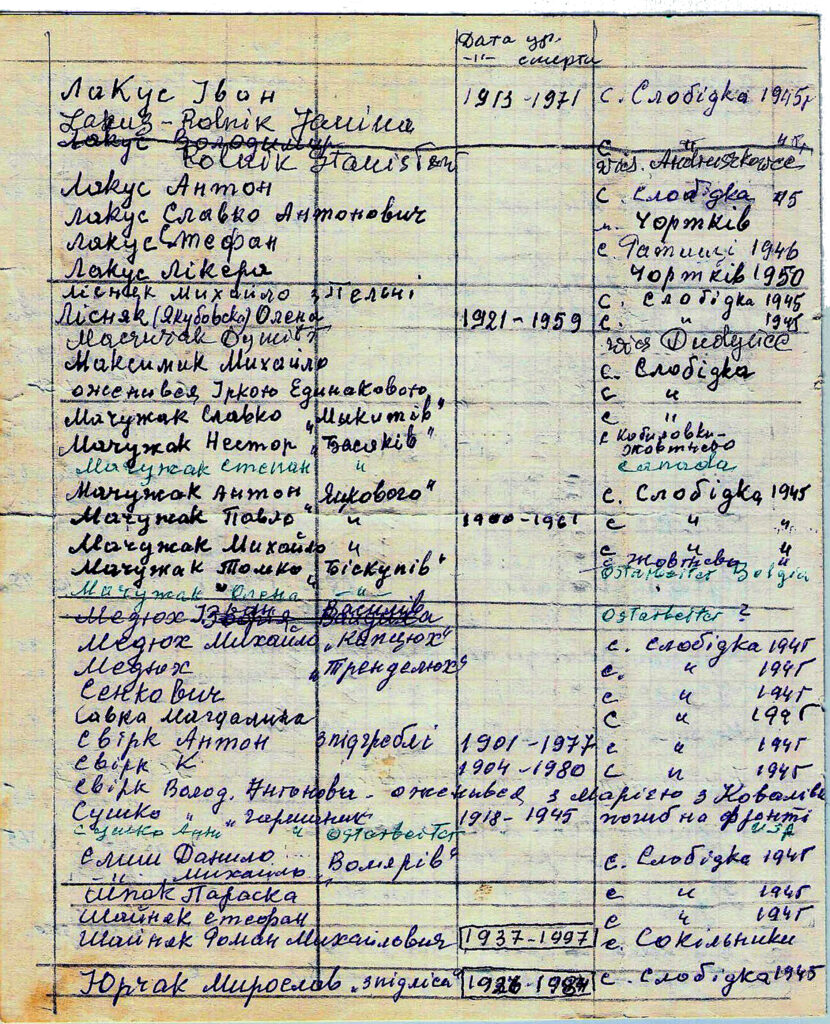 Дата ур.
-"- смерти
Лакус Іван 1913-1971 с. Слобідка 1945р
Lakus - Rolnik Janina
Лакус Володимир с "
Rolnik Stanisław wieś. Andruszkowce
Лакус Антон с. Слобідка 45
Лакус Славко Антонович м. Чортків
Лакус Стефан с. 1946
Лакус Лікера Чортків 1950
Лісняк Михайло з Пельні с. Слобідка 1945
Лісняк (Якубовска) Олена 1921-1959 с. " 1945
wieś Dudyńce
Максимик Михайло с. Слобідка
оженився Іркою Единаковою с "
Мачужак Славко „Микитів" с "
Мачужак Нестор „Басяків" с
Жовтнево
Мачужак Степан " Canada
Мачужак Антон Яцкового" с. Слобідка 1945
Мачужак Павло " " 1900-1961 с " "
Мачужак Михайло " с " "
Мачужак Томко „Біскупів" с Жовтневе "
Мачужак Олена -"- Ostarbeiter Belgia
Медюх Іван Василів Ostarbeiter ?
Медюх Михайло „Капцюх" с. Слобідка 1945
Медюх „Тренделюх" с. " 1945
Сенкович с " 1945
Савка Магдалина с " 1945
Свірк Антон з підгреблі 1901-1977 с " 1945
Свірк К 1904-1980 с " 1945
Свірк Волод. Антонович - оженився з Марією з Ковалів
Сушко " 1918-1945 погиб на фронті
Сушко Анн " Ostarbeiter
Данило „Волярів" с. Слобідка 1945
" Михайло
Параска с " 1945
Шайняк Стефан с " 1945
Шайняк Роман Михайлович 1937-1997 с. Сокільники
Юрчак Мирослав „з підліса" с. Слобідка 1945